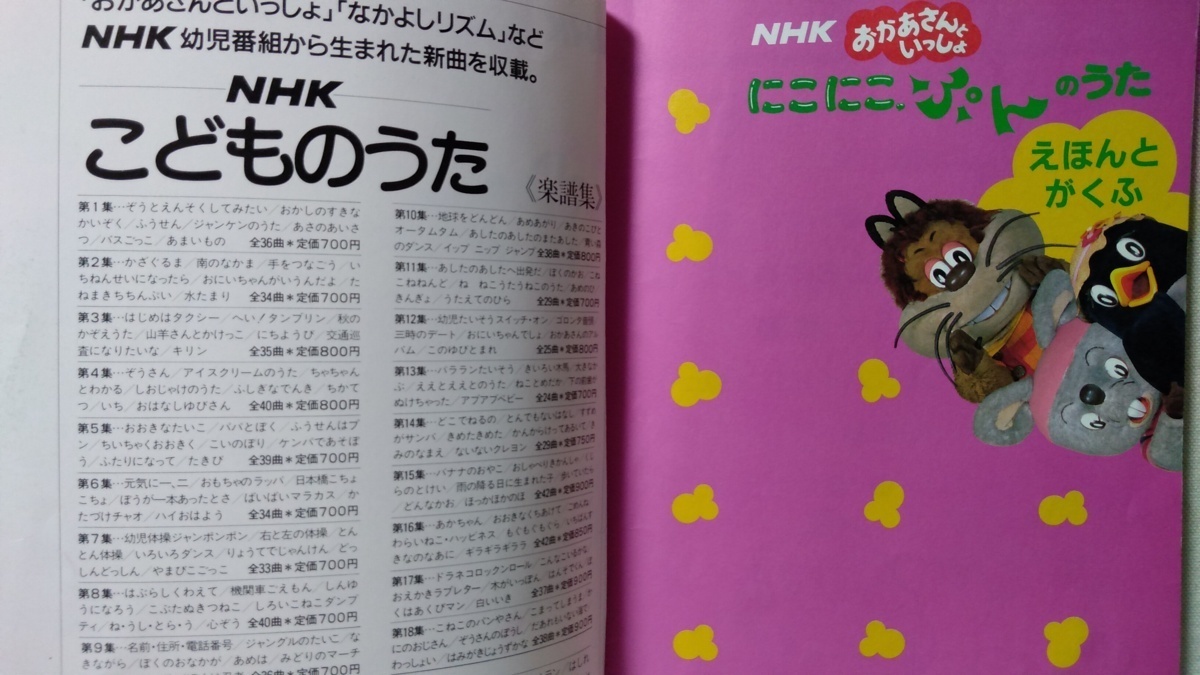 「おかあさんといっしょ」「なかよしリズム」など
NHK 幼児番組から生まれた新曲を収載。
NHK
こどものうた
《楽譜集》
第1集…ぞうとえんそくしてみたい/おかしのすきな
かいぞく/ふうせん/ジャンケンのうた/あさのあいさ
つ/バスごっこ/あまいもの 全36曲*定価700円
第2集…かざぐるま/南のなかま/手をつなごう/い
ちねんせいになったら/おにいちゃんがいうんだよ/た
ねまきちちんぷい/水たまり 全34曲*定価700円
第3集…はじめはタクシー/へい!タンブリン/秋の
かぞえうた/山羊さんとかけっこ/にちようび/交通巡
査になりたいな/キリン 全35曲*定価800円
第4集…ぞうさん/アイスクリームのうた/ちゃちゃん
とわかる/しおじゃけのうた/ふしぎなでんき/ちかて
つ/いち/おはなしゆびさん 全40曲*定価800円
第5集…おおきなたいこ/パパとぼく/ふうせんはプ
ン/ちいちゃくおおきく/こいのぼり/ケンパであそぼ
う/ふたりになって/たきび 全39曲*定価700円
第6集…元気に一、二/おもちゃのラッパ/日本橋こちょ
こちょ/ぼうが一本あったとさ/ぱいぱいマラカス/か
たづけチャオ/ハイおはよう 全34曲*定価700円
第7集…幼児体操ジャンポンポン/右と左の体操/とん
とん体操/いろいろダンス/りょうてでじゃんけん/どっ
しんどっしん/やまびこごっこ 全33曲*定価700円
第8集…はぶらしくわえて/機関車ごえもん/しんゆ
うになろう/こぶたぬきつねこ/しろいこねこダンプ
ティ/ね・うし・とら・う/心ぞう 全40曲*定価700円
第9集…名前・住所・電話番号/ジャングルのたいこ/な
きながら/ぼくのおなかが/あめは/みどりのマーチ
全36曲*定価700円
第10集…地球をどんどん/あめあがり/あきのこびと
オータムタム/あしたのあしたのまたあした/青い森
のダンス/イップ ニップ ジャンプ 全38曲*定価800円
第11集…あしたのあしたへ出発だ/ぼくのおかお/こね
こねねんど/ね ねこうたうねこのうた/あめのひ
きんぎょ/うたえてのひら 全29曲*定価700円
第12集…幼児たいそうスイッチ・オン/ゴロンタ
三時のデート/おにいちゃんでしょ/おかあさんのアル
バム/このゆびとまれ 全25曲*定価800円
第13集…パラランたいそう/きいろい木馬/大きなか
ぶ/ええとええとのうた/ねことめだか/下の前歯が
ぬけちゃった/アブアブベビー 全24曲*定価700円
第14集…どこでねるの/とんでもないはなし/すずめ
がサンバ/きめたきめた/かんからけってあるいて/き
みのなまえ/ないないクレヨン 全29曲*定価750円
第15集…バナナのおやこ/おしゃべりきかんしゃ/くじ
らのとけい/雨の降る日に生まれた子/歩いていたら
/どんなかお/ほっかほかのほ 全42曲*定価900円
第16集…あかちゃん/おおきなくちあけて/ごめんね
わらいねこ・ハッピネス/もぐもぐもぐら/いちばんす
きなのなあに/ギラギラギララ 全42曲*定価850円
第17集…ドラネコロックンロール/こんなこいるかな
おえかきラブレター/木がいっぽん/はんそでくん/ぼ
くはあくびマン/白いいき 全37曲*定価900円
第18集…こねこのパンやさん/こまってしまうま/か
にのおじさん/ぞうさんのぼうし/だあれもいない海で
わっしょい/はみがきじょうずかな 全38曲*定価900円
NHK おかあさんと
いっしょ
にこにこ、ぷんのうた
えほんと
がくふ